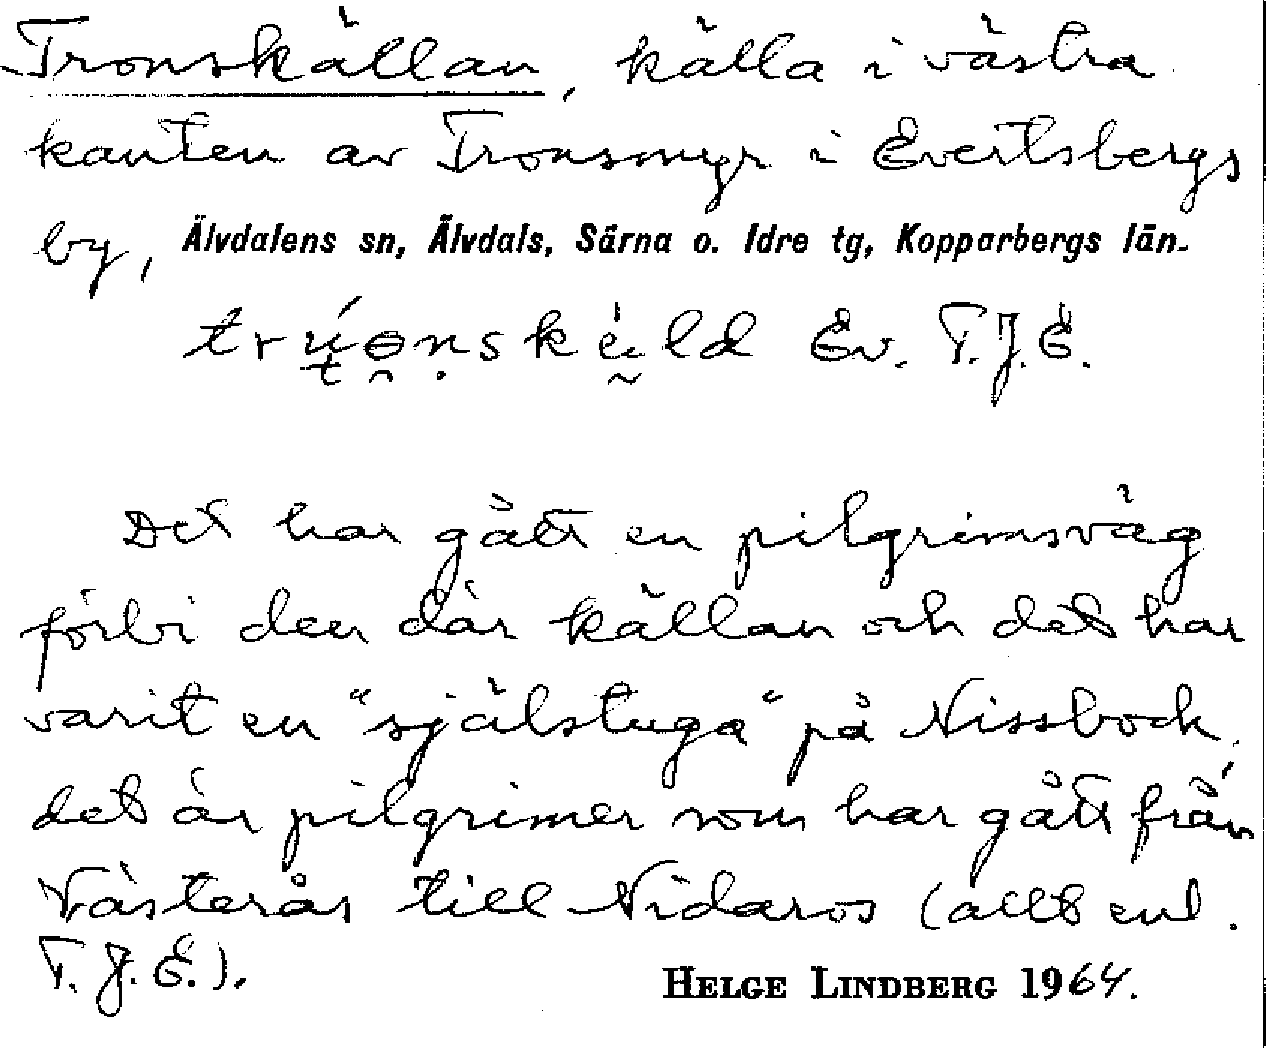 Tronskällan, källa i västra
kanten av Tronsmyr i Evertsbergs
by, Älvdalens sn, Älvdals, Särna o. Idre tg, Kopparbergs län.
Ev. T.J.E.
Det har gått en pilgrimsväg
förbi den där källan och det har
varit en "själstuga" på Nissbock,
det är pilgrimer som har gått från
Västerås till Nidaros (allt enl.
T.J.E.).
HELGE LINDBERG 1964.